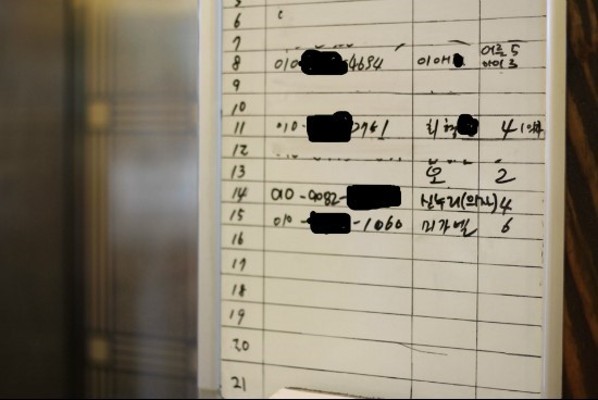 6
7
8 010- 4694 이애 어른 5 아이 3
9
10
11 010- 2761 최혁 4
12
13 오 2
14 010-9082- 신누리(의사) 4
15 010- -1060 미가엘 6
16
17
18
19
20
21